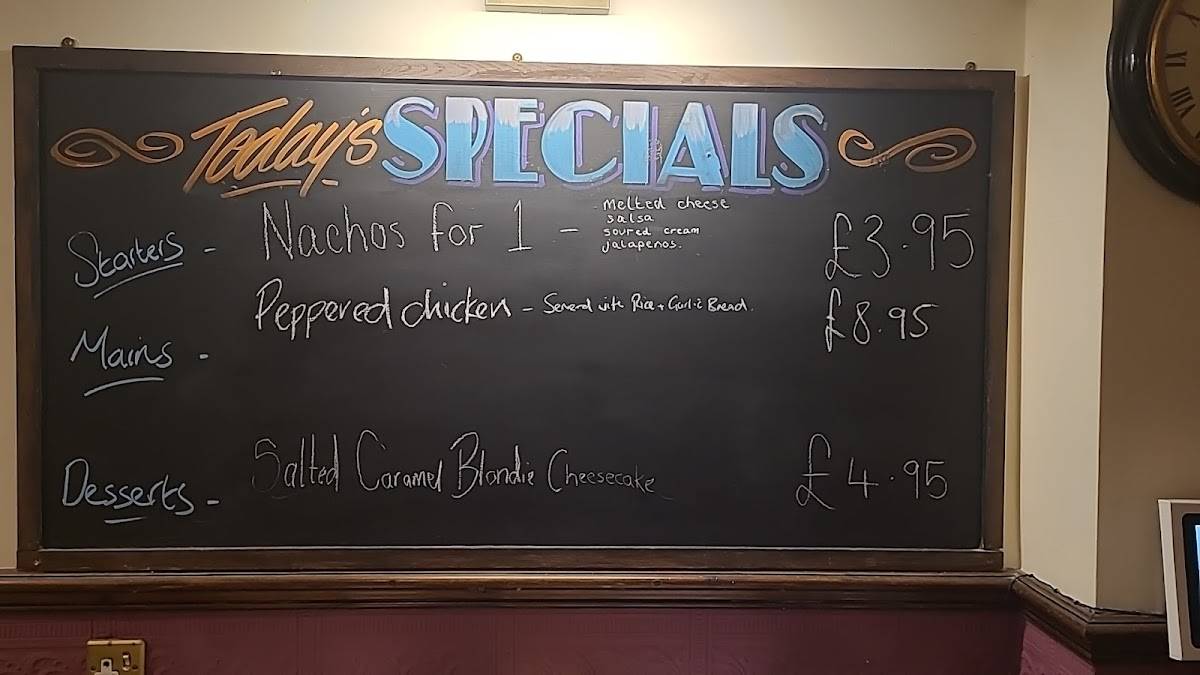 Today's SPECIALS
Starters - Nachos for 1 - melted cheese
salsa
soured cream
jalapenos. £3.95
Peppered chicken - Served with Rice + Garlic Bread. £8.95
Mains -
Desserts - Salted Caramel Blondie Cheesecake £4.95